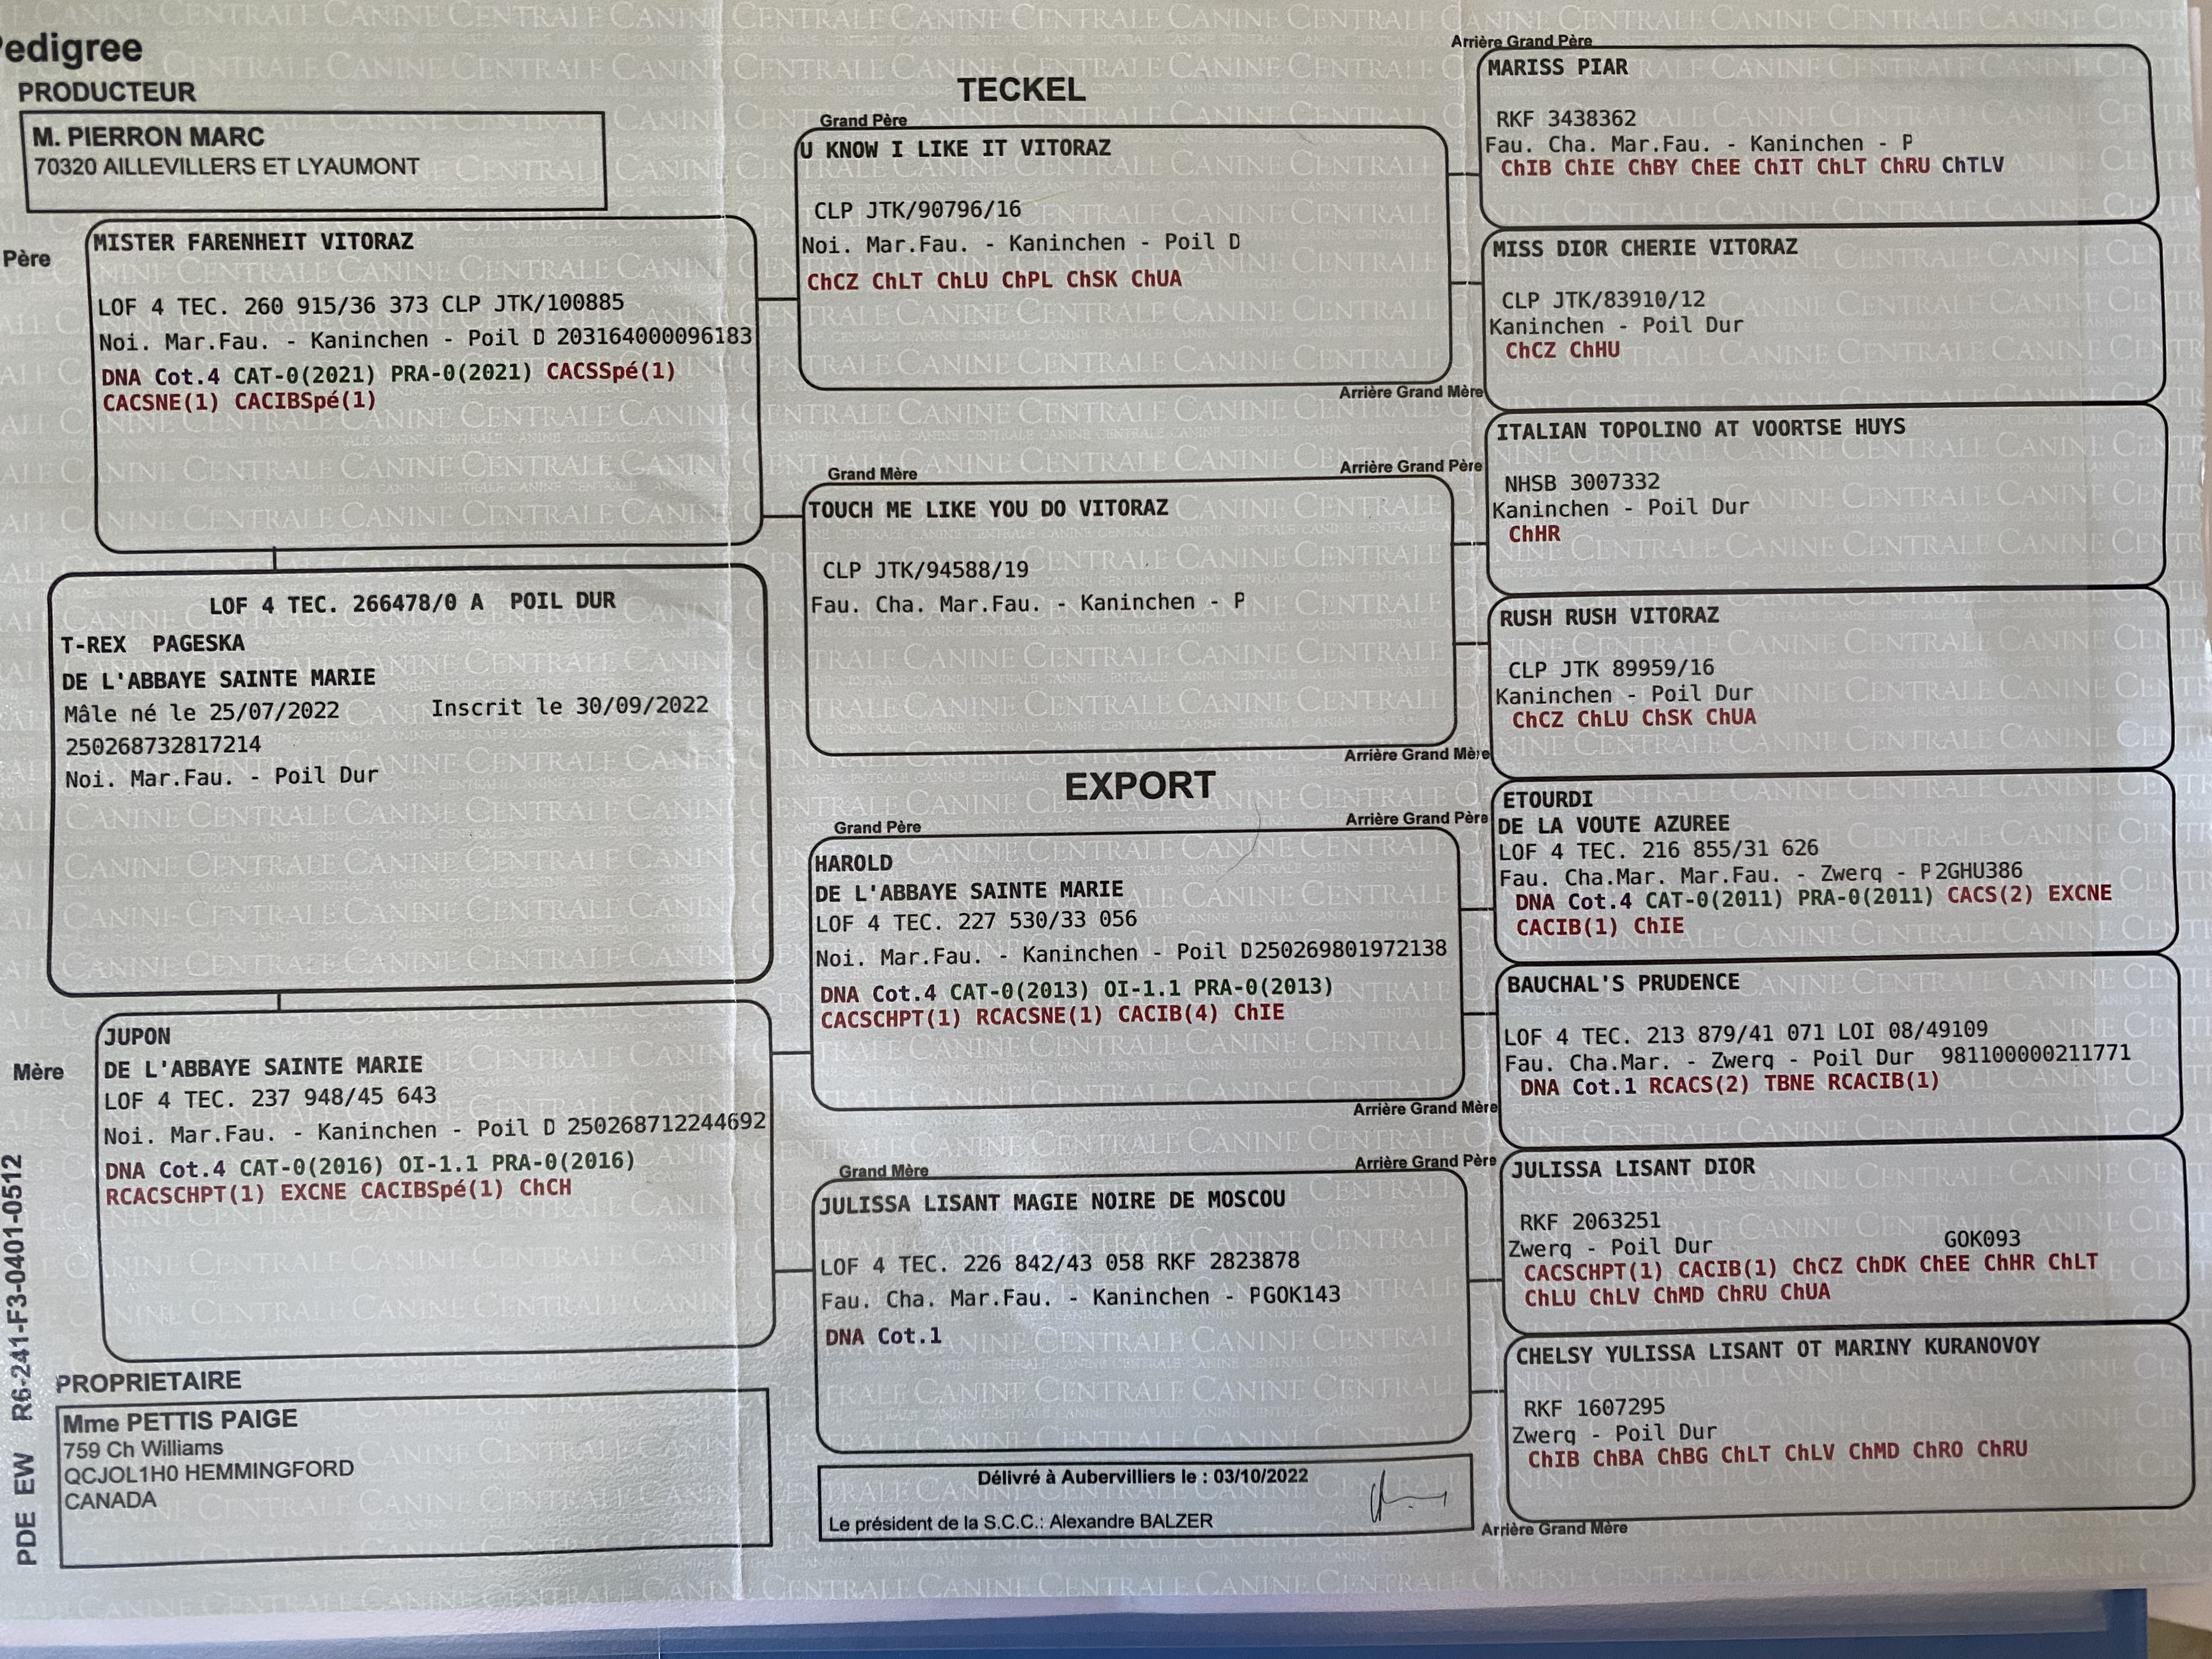 Pedigree
PRODUCTEUR
M. PIERRON MARC
70320 AILLEVILLERS ET LYAUMONT
Père
MISTER FARENHEIT VITORAZ
LOF 4 TEC. 260 915/36 373 CLP JTK/100885
Noi. Mar.Fau. - Kaninchen - Poil D 203164000096183
DNA Cot.4 CAT-0(2021) PRA-0(2021) CACSSpé(1)
CACSNE(1) CACIBSpé(1)
LOF 4 TEC. 266478/0 A POIL DUR
T-REX PAGESKA
DE L'ABBAYE SAINTE MARIE
Mâle né le 25/07/2022 Inscrit le 30/09/2022
250268732817214
Noi. Mar.Fau. - Poil Dur
Mère
JUPON
DE L'ABBAYE SAINTE MARIE
LOF 4 TEC. 237 948/45 643
Noi. Mar.Fau. - Kaninchen - Poil D 250268712244692
DNA Cot.4 CAT-0(2016) OI-1.1 PRA-0(2016)
RCACSCHPT(1) EXCNE CACIBSpé(1) ChCH
PROPRIETAIRE
Mme PETTIS PAIGE
759 Ch Williams
QCJOL1H0 HEMMINGFORD
CANADA
PDE EW R6-241-F3-0401-0512
TECKEL
Grand Père
U KNOW I LIKE IT VITORAZ
CLP JTK/90796/16
Noi. Mar.Fau. - Kaninchen - Poil D
ChCZ ChLT ChLU ChPL ChSK ChUA
Grand Mère
TOUCH ME LIKE YOU DO VITORAZ
CLP JTK/94588/19
Fau. Cha. Mar.Fau. - Kaninchen - P
EXPORT
Grand Père
HAROLD
DE L'ABBAYE SAINTE MARIE
LOF 4 TEC. 227 530/33 056
Noi. Mar.Fau. - Kaninchen - Poil D250269801972138
DNA Cot.4 CAT-0(2013) OI-1.1 PRA-0(2013)
CACSCHPT(1) RCACSNE(1) CACIB(4) ChIE
Grand Mère
JULISSA LISANT MAGIE NOIRE DE MOSCOU
LOF 4 TEC. 226 842/43 058 RKF 2823878
Fau. Cha. Mar.Fau. - Kaninchen - PGOK143
DNA Cot.1
Délivré à Aubervilliers le : 03/10/2022
Le président de la S.C.C.: Alexandre BALZER
Arrière Grand Père
MARISS PIAR
RKF 3438362
Fau. Cha. Mar.Fau. - Kaninchen - P
ChIB ChIE ChBY ChEE ChIT ChLT ChRU ChTLV
MISS DIOR CHERIE VITORAZ
CLP JTK/83910/12
Kaninchen - Poil Dur
ChCZ ChHU
Arrière Grand Mère
Arrière Grand Père
ITALIAN TOPOLINO AT VOORTSE HUYS
NHSB 3007332
Kaninchen - Poil Dur
ChHR
RUSH RUSH VITORAZ
CLP JTK 89959/16
Kaninchen - Poil Dur
ChCZ ChLU ChSK ChUA
Arrière Grand Mère
Arrière Grand Père
ETOURDI
DE LA VOUTE AZUREE
LOF 4 TEC. 216 855/31 626
Fau. Cha.Mar. Mar.Fau. - Zwerg - P2GHU386
DNA Cot.4 CAT-0(2011) PRA-0(2011) CACS(2) EXCNE
CACIB(1) ChIE
BAUCHAL'S PRUDENCE
LOF 4 TEC. 213 879/41 071 LOI 08/49109
Fau. Cha.Mar. - Zwerg - Poil Dur 981100000211771
DNA Cot.1 RCACS(2) TBNE RCACIB(1)
Arrière Grand Mère
Arrière Grand Père
JULISSA LISANT DIOR
RKF 2063251
Zwerg - Poil Dur GOK093
CACSCHPT(1) CACIB(1) ChCZ ChDK ChEE ChHR ChLT
ChLU ChLV ChMD ChRU ChUA
CHELSY YULISSA LISANT OT MARINY KURANOVOY
RKF 1607295
Zwerg - Poil Dur
ChIB ChBA ChBG ChLT ChLV ChMD ChRO ChRU
Arrière Grand Mère